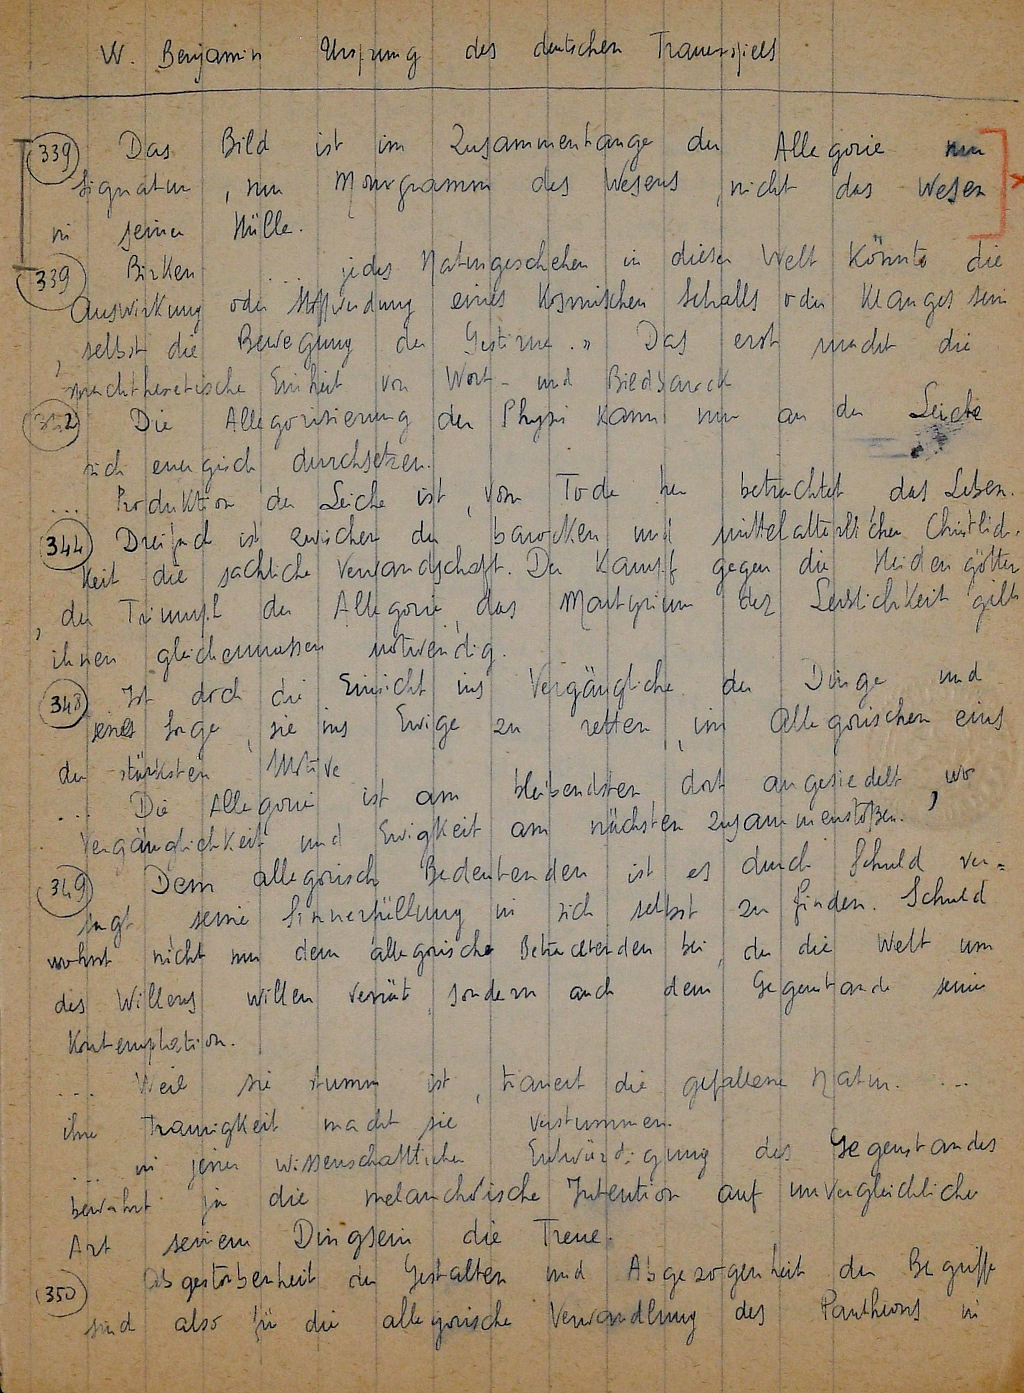 W. Benjamin Ursprung des deutschen Trauerspiels
339 Das Bild ist im Zusammenhange der Allegorie nur
Signatur, nur Monogramm des Wesens, nicht das Wesen
in seiner Hülle.
339 Birken ... jedes Naturgeschehen in dieser Welt könnte die
Auswirkung oder Stoffwerdung eines kosmischen Schalls oder Klanges sein
, selbst die Bewegung der Gestirne." Das erst macht die
Einheit von Wort- und Bildbarock
342 Die Allegorisierung der Physi kann nur an der Leiche
sich energisch durchsetzen.
... Produktion der Leiche ist, vom Tode her betrachtet, das Leben.
344 Dreifach ist zwischen der barocken und mittelalterlichen Christlich-
keit die sachliche Verwandschaft. Der Kampf gegen die Heidengötter
, der Triumph der Allegorie, das Martyrium der Leiblichkeit gilt
ihnen gleichermassen notwendig.
348 Ist doch die Einsicht ins Vergängliche der Dinge und
jene Sorge, sie ins Ewige zu retten, im Allegorischen eins
der stärksten Motive
... Die Allegorie ist am bleibendsten dort angesiedelt, wo
Vergänglichkeit und Ewigkeit am nächsten zusammenstoßen.
349 Dem allegorisch Bedeutenden ist es durch Schuld ver-
sagt seine Sinnerfüllung in sich selbst zu finden. Schuld
wohnt nicht nur dem allegorisch Betrachtenden bei, der die Welt um
des Willens willen verrät, sondern auch dem Gegenstande seiner
Kontemplation.
... Weil sie stumm ist, trauert die gefallene Natur. ...
ihre Traurigkeit macht sie verstummen.
... in jener wissenschaftlichen Entwürdigung des Gegenstandes
bewahrt ja die melancholische Intention auf unvergleichliche
Art seinem Dingsein die Treue.
350 Abgestorbenheit der Gestalten und Abgezogenheit der Begriffe
sind also für die allegorische Verwandlung des Pantheons in